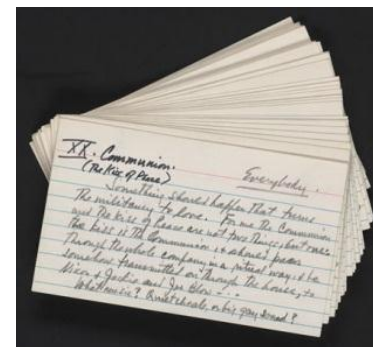 XX. Communion.
(The Kiss of Peace)
Everybody.
Something should happen that turns
the militancy to love. For me the Communion
and the Kiss of Peace are not two things, but one.
The kiss is the Communion & should pass
through the whole company in a ritual way & be
somehow transmitted on through the house, to
Nixon & Jackie and Joe Blow - - -
What music? Quiet chorale, or big gay sound?